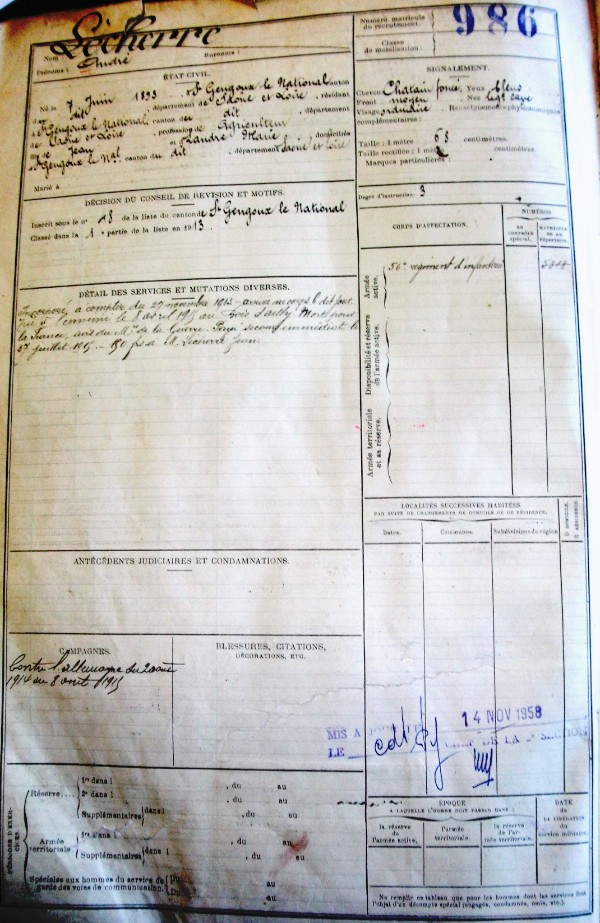 Nom Lécherre
Prénoms : André
Surnoms :
Numéro matricule
du recrutement :
986
Classe
de mobilisation :
ÉTAT CIVIL.
Né le 7 Juin 1893 à St Gengoux le National canton
du dit, département de Saône et Loire, résidant
à St Gengoux le National canton du dit, département
de Saône et Loire, profession de Agriculteur
de Jean et de Landré Marie, domiciliés
à St Gengoux le Nal canton du dit, département Saône et Loire
Marié à
SIGNALEMENT.
Cheveux Chatain foncé Yeux bleus
Front moyen Nez
Visage ordinaire Renseignements physionomiques
complémentaires :
Taille : 1 mètre 68 centimètres.
Taille rectifiée : 1 mètre centimètres.
Marques particulières :
Degré d'instruction : 3
DÉCISION DU CONSEIL DE RÉVISION ET MOTIFS.
Inscrit sous le n° 18 de la liste du canton de St Gengoux le National
Classé dans la 1 partie de la liste en 1913
CORPS D'AFFECTATION.
NUMÉROS
au
contrôle
spécial.
matricule
ou au
répertoire.
Armée
active.
56e régiment d'infanterie
Disponibilité et réserve
de l'armée active.
Armée territoriale
et sa réserve.
DÉTAIL DES SERVICES ET MUTATIONS DIVERSES.
Incorporé à compter du 27 novembre 1913 - arrivé au corps le dit jour.
Tué à l'ennemi le 8 avril 1915 au Bois d'Ailly Mort pour
la France, avis du M. de la Guerre. Payé secours immédiat le
juillet 1915. - 150 fs à M. Lécherre Jean.
LOCALITÉS SUCCESSIVES HABITÉES
PAR SUITE DE CHANGEMENTS DE DOMICILE OU DE RÉSIDENCE.
Dates.
Communes.
Subdivisions de région
D domicile.
R résidence.
ANTÉCÉDENTS JUDICIAIRES ET CONDAMNATIONS.
CAMPAGNES.
Contre l'Allemagne du 2 août
1914 au 8 avril 1915
BLESSURES, CITATIONS,
DÉCORATIONS, ETC.
MIS A JOUR
LE
14 NOV 1958
CHEF DE LA SECTION
PÉRIODES D'EXERCICES
Réserve
1re dans l , du au
2e dans l , du au
Supplémentaires dans l , du au
Armée
territoriale
1re dans l , du au
Supplémentaires dans l , du au
Spéciales aux hommes du service de
garde des voies de communication.
Du au
Du au
ÉPOQUE
A LAQUELLE L'HOMME DOIT PASSER DANS :
la réserve
de
l'armée active.
l'armée
territoriale.
la réserve
de l'armée territoriale.
DATE
de
LA LIBÉRATION
du
service militaire.
Ne remplir ce tableau que pour les hommes dont les services font
l'objet d'un décompte spécial (engagés, condamnés, omis, etc.).